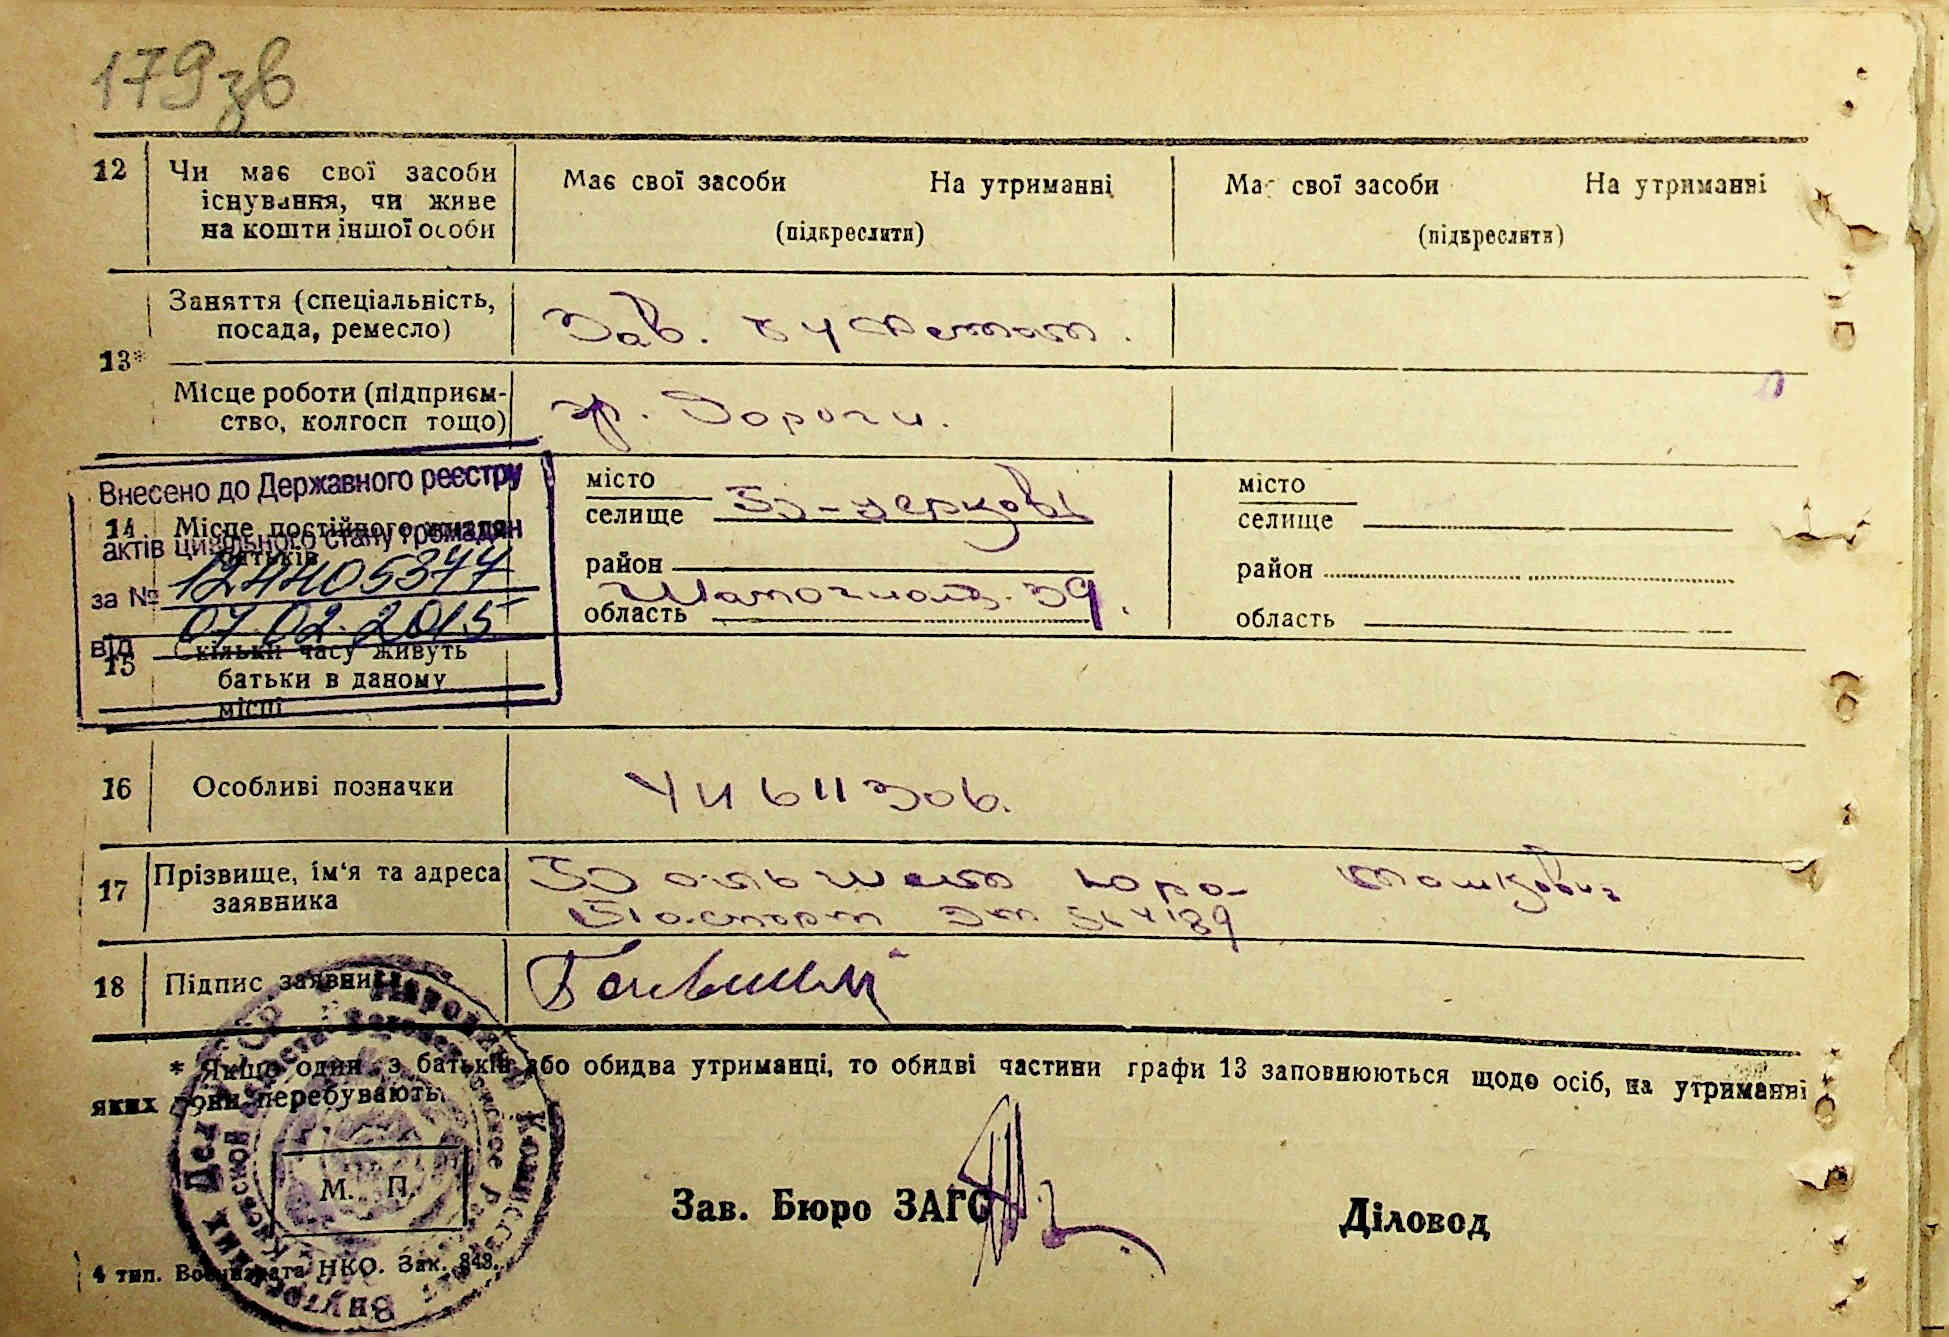 179зв
12 Чи має свої засоби Має свої засоби На утриманні Має свої засоби На утриманні
існування, чи живе (підкреслити) (підкреслити)
на кошти іншої особи
Заняття (спеціальність, Зав. буфетом.
посада, ремесло)
13*
Місце роботи (підприєм- Дороги.
ство, колгосп тощо)
Внесено до Державного реєстру
актів цивільного стану громадян
за № 124405377
від 07.02.2015
14 Місце постійного
батьків
місто Б-церкові місто
селище селище
район район
область 39. область
15 Скільки часу живуть
батьки в даному
місці
16 Особливі позначки
17 Прізвище, ім'я та адреса
заявника Паспорт
18 Підпис заявника
* Якщо один з батьків або обидва утриманці, то обидві частини графи 13 заповнюються щодо осіб, на утриманні
яких вони перебувають.
М. П.
Зав. Бюро ЗАГС Діловод
4 тип. Воениздата НКО. Зак. 843.
Народный Комиссариат Внутренних Дел